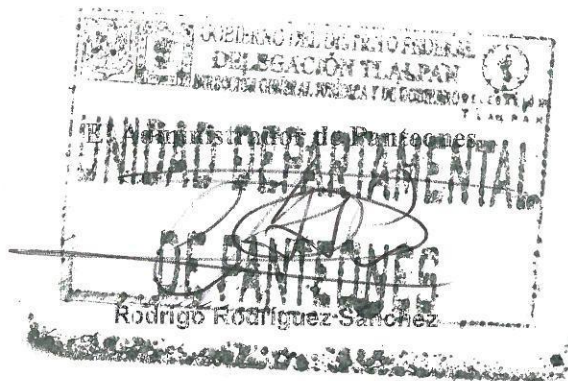 GOBIERNO DEL DISTRITO FEDERAL
DELEGACIÓN TLALPAN
DIRECCIÓN GENERAL JURÍDICA Y DE GOBIERNO
TLALPAN
El Administrador de Panteones
UNIDAD DEPARTAMENTAL
DE PANTEONES
Rodrigo Rodríguez Sánchez